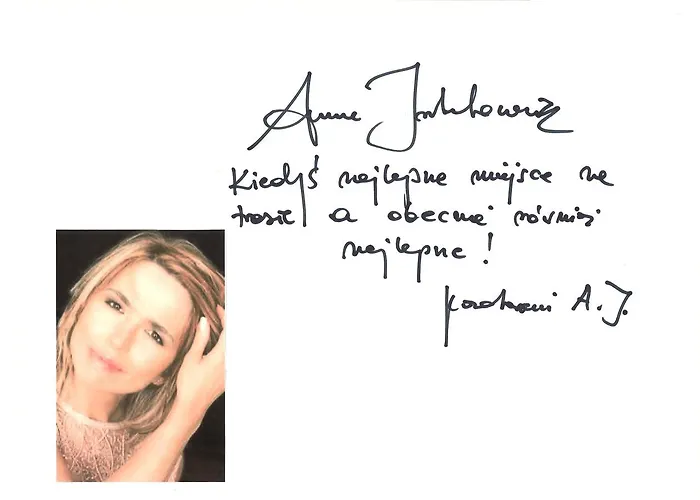 Anna Jurksztowicz
Kiedyś najlepsze miejsce na
trasie, a obecnie również
najlepsze!
pozdrawiam A.J.